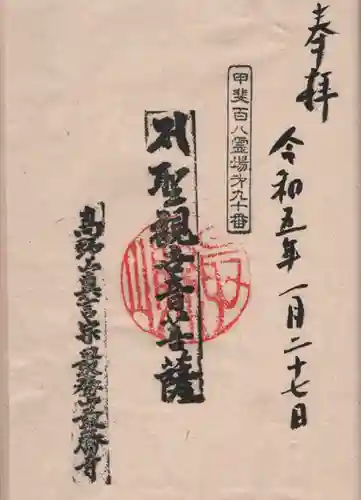 奉拝
令和五年一月二十七日
甲斐百八霊場第九十番
聖観世音菩薩
高野山真言宗最勝寺